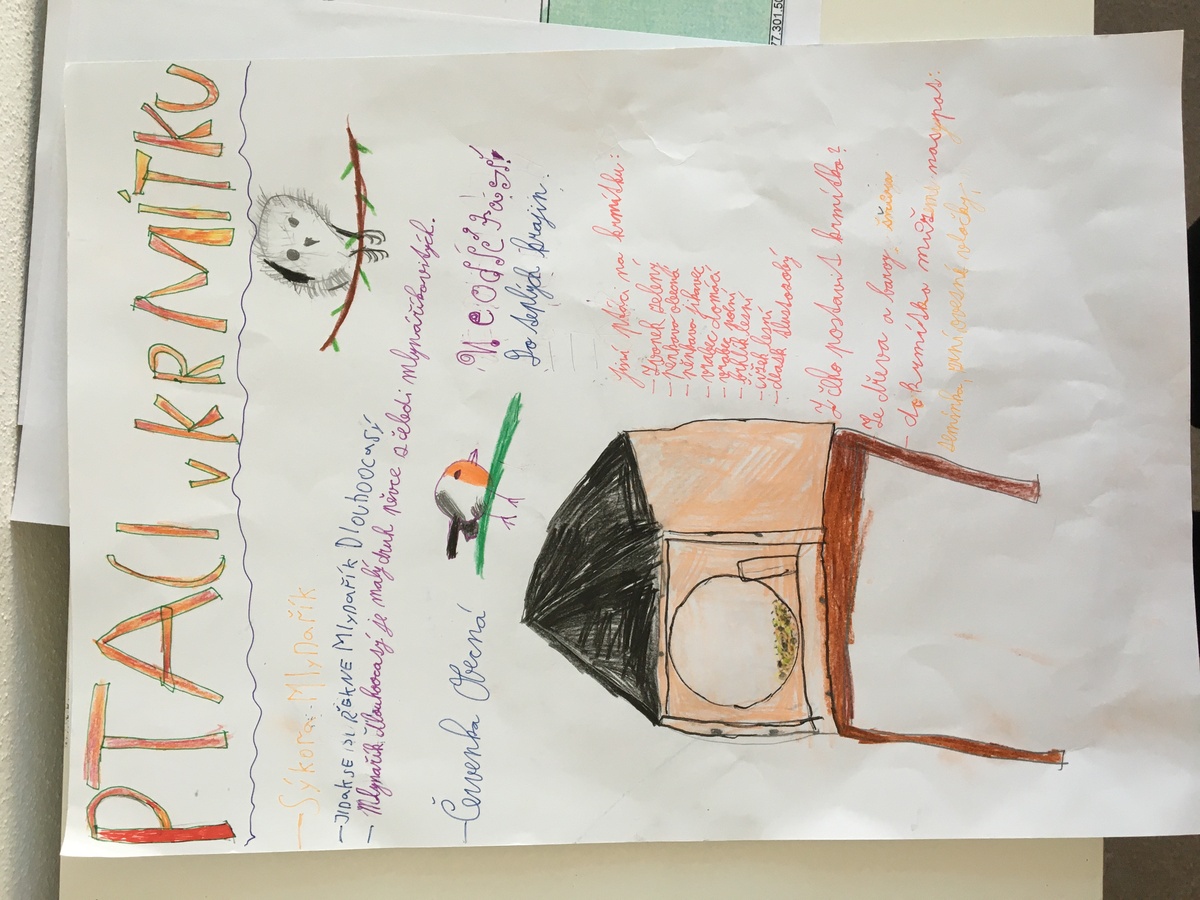 PTÁCI v KRMÍTKU
— Sýkora - Mlynařík
— JIDAKSE ISI ŘEKNE MLYNAŘÍK DLOUHOOCASÍ
— Mlynařík dlouhoocasý je malý druh pěvce z čeledi mlynaříkovitých.
— Červenka Obecná
Do teplých krajin.
Jiní ptáci na krmítku:
— Zvonek zelený
— pěnkava obecná
— pěnkava jikavec
— vrabec domácí
— vrabec polní
— brhlík lesní
— čížek lesní
— dlask tlustozobý
Z čeho postavíš krmítko?
Ze dřeva a barvy
— do krmítka můžeme nasypat:
semínka, zrní ovesné vločky,
77.301.50